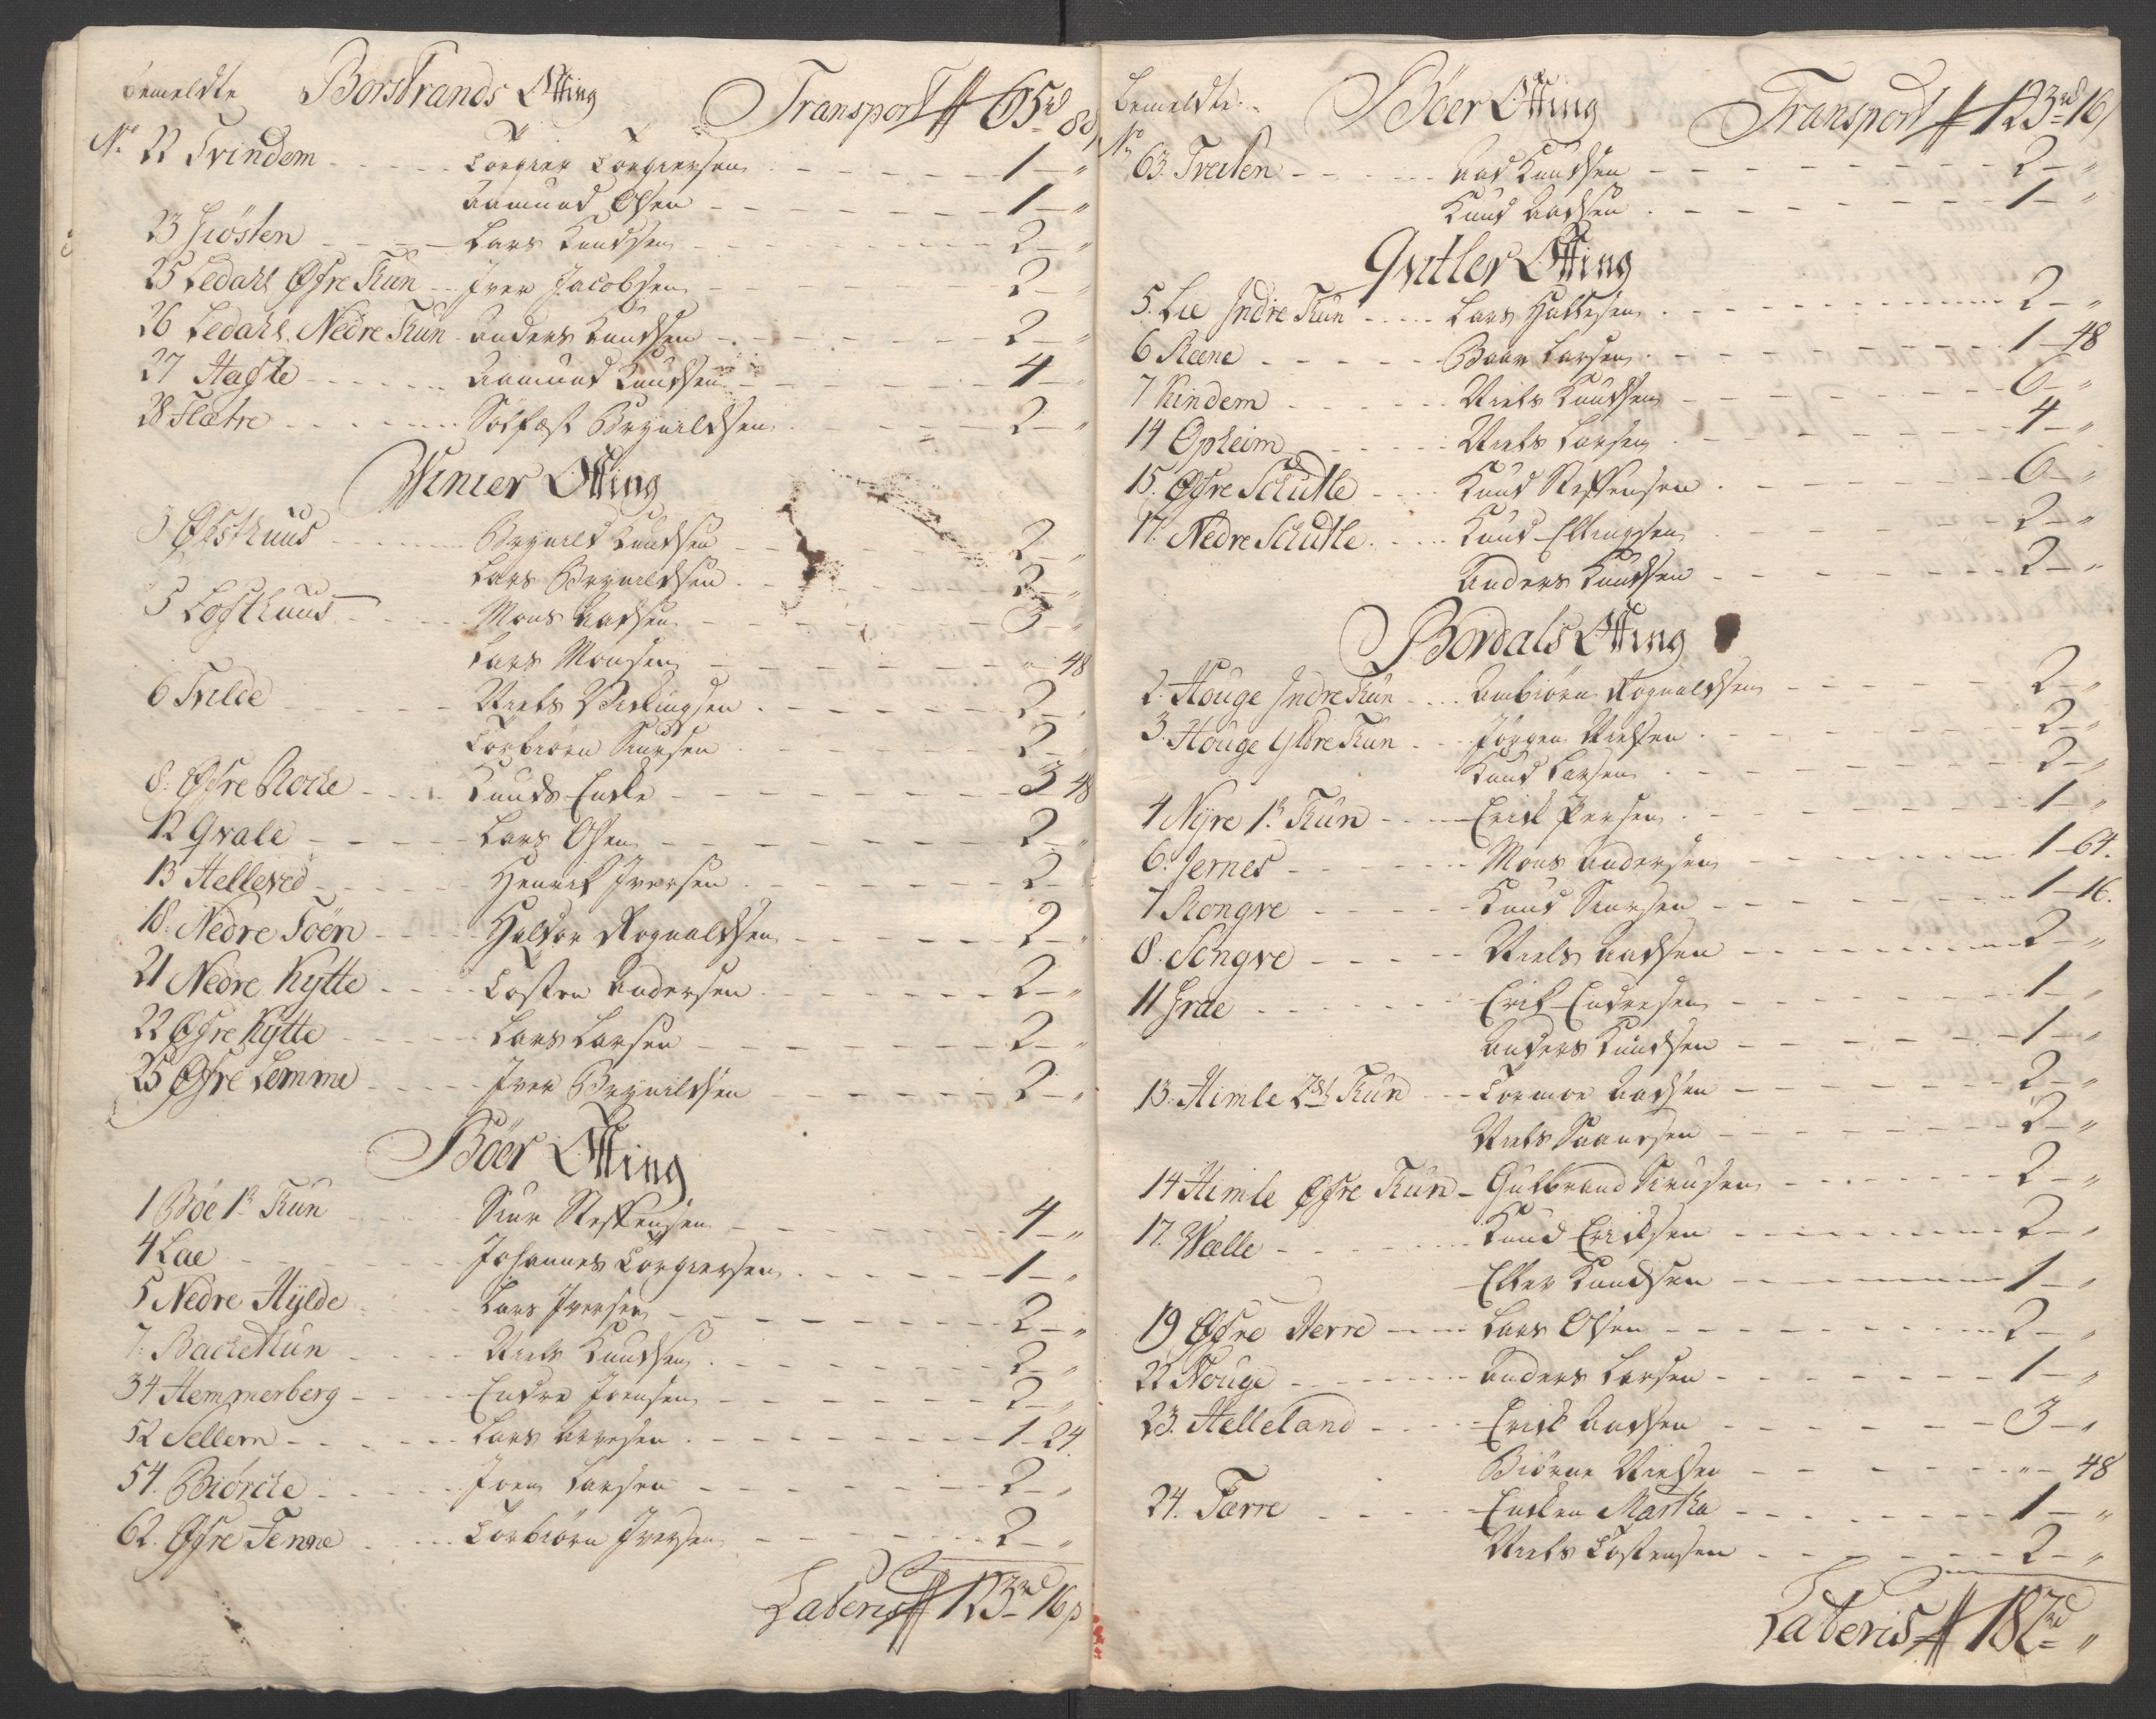 bemeldte Borstrands Otting Transport ₰ 65 rd 80
No 22 Tvindem Torgier Torgiersen 1 — "
Aamund Olsen 1 — "
23 Hiösten Lars Knudsen 2 — "
25 Ledahl Øfre Tun Iver Jacobsen 2 — "
26 Ledahl Nedre Tun Anders Knudsen 2 — "
27 Hafste Aamund Knudsen 4 — "
28 Flatre Solfæst Brynildsen 2 — "
Winier Otting
3 Øfsthuus Brynild Knudsen 2 — "
Lars Brynildsen 2 — "
5 Lofthuus Mons Aadsen 3 — "
Lars Monsen " 48
6 Tvilde Niels Vikingsen 2 —
Torbiørn Siursen 2 —
8. Øfre Rocke Knuds Enke 3 48
12 Qvale Lars Olsen 2 "
13 Helleved Henrik Iversen 2 —
18. Nedre Töen Haldor Rognaldsen 2 — "
21 Nedre Kytte Tosten Andersen 2 — "
22 Øfre Kytte Lars Larsen 2 — "
25 Øfre Lemme Iver Brynildsen 2 — "
Böer Otting
1 Böe 1ste Tun Siur Steffensen 4 — "
4 Lae Johannes Torgiersen 1 — "
5 Nedre Hylde Lars Iversen 2 — "
7. Backetun Niels Knudsen 2 — "
34 Hemmerberg Endre Joensen 2 — "
52 Sellem Lars Arvesen 1 — 24
54. Biørcke Joen Larsen 2 — "
62. Øfre Tenne Torbiørn Iversen 2 — "
Lateris ₰ 123 rd 16 s
bemeldte Böer Otting Transport ₰ 123 rd 16 s
No 63. Trælen Aad Knudsen 2 — "
Knud Aadsen 1 — "
Qvitler Otting
5. Lie Indre Tun Lars Hallesen 2 — "
6 Reene Baar Larsen 1 — 48
7 Kindem Niels Knudsen 6 — "
14 Opheim Niels Larsen 4 — "
15. Øfre Schutle Knud Steffensen 6 — "
17. Nedre Schutle Knud Ellingsen 2 — "
Anders Knudsen 2 — "
Bordals Otting
2. Houge Indre Tun Ambiörn Rognaldsen 2 — "
3. Houge Ydre Tun Jörgen Nielsen 2 — "
Knud Larsen 2 — "
4 Nyre 1ste Tun Erick Persen 1 — "
6. Jernes Mons Andersen 1 — 64.
7 Rongve Knud Siursen 1 — 16.
8. Songve Niels Aadsen 2 — "
11 Grae Erik Endresen 1 — "
Anders Knudsen 1 — "
13. Himle 2det Tun Tormoe Aadsen 2 — "
Niels Siursen 2 — "
14 Himle Øfre Tun Gulbrand Siursen 2 — "
17. Wælle Knud Ericksen 2 — "
Eller Knudsen 1 — "
19 Øfre Herre Lars Olsen 2 — "
22 Nouge Anders Larsen 1 — "
23. Helleland Erick Aadsen 3 — "
Biörne Nielsen " — 48
24. Færre Encken Martha 1 — "
Niels Tostensen 2 — "
Lateris ₰ 187 rd "